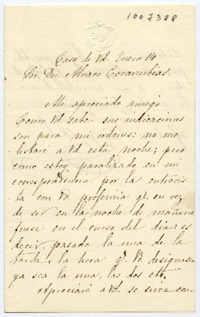 1007388
Casa de Vd. Enero 14
Sr. Dn. Alvaro Covarrubias.
Mi apreciado amigo
Como Vd. sabe sus indicaciones
son para mi órdenes: no mo-
lestaré a Vd esta noche; pero
como estoy paralizado en mi
correspondencia por la entrevis-
ta con Vd preferiria qe. en vez
de ser en la noche de mañana
fuese en el curso del dia: es
decir, pasada la una de la
tarde a la hora qe. Vd designase
ya sea la una, las dos etc.
Apreciaré a Vd. se sirva